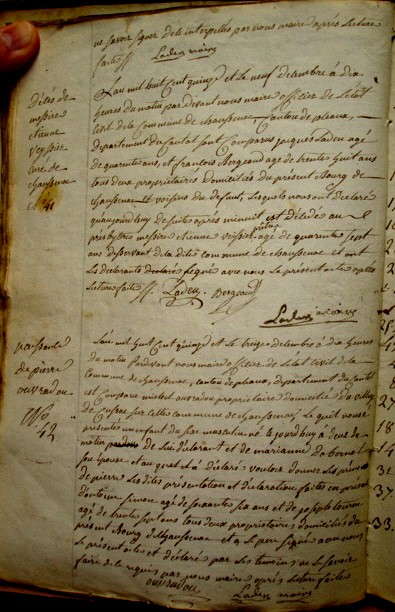 ne savoir signer de le interpellés par nous maire après lecture
faite ff. Laden maire
Décès de
messire
etienne
Veyssier
curé de
chaussenac
N° 41
L'an mil huit Cent quinze et le neuf decembre à dix
heures du matin par devant nous maire officier de L'état
Civil de la Commune de chaussenac, Canton de pleaux,
Département du Cantal sont Comparus jacques Laden agé
de quarante ans, et francois Bergeaud agé de trente huit ans
tous deux proprietaires domiciliés du présent Bourg de
chaussenac et voisins du défunt, Lesquels nous ont déclaré
qu'aujourd'huy de suite après minuit est décédé au
presbytere messire etienne veissier prêtre agé de quarante sept
ans desservant de la dite commune de chaussenac et ont
Les déclarants signé avec nous Le présent acte après
Lecture faite ff. Laden Bergeaud
Laden maire
naissance
de pierre
ouvradou
N°
42
L'an mil huit Cent quinze et Le treize decembre à dix heures
du matin Pardevant nous maire officier de L'état Civil de la
commune de chaussenac, canton de pleaux, département du Cantal
est Comparu ouvradou proprietaire domicilié du village
de commune de chaussenac, Lequel nous a
présenté un enfant du sexe masculin né Le jourd'huy à deux
matin de Lui déclarant et de marianne
son épouse et auquel il a déclaré vouloir donner Les prénoms
de pierre Les dites présentation et déclaration faites en présence
d'antoine agé de soixante six ans et de joseph
agé de trente sept ans tous deux proprietaires domiciliés du
présent Bourg de chaussenac et Le pere signé avec nous
Le présent acte et déclaré par Les temoins ne Savoir
faire de ce requis par nous maire après Lecture faite
ouvradou Laden maire